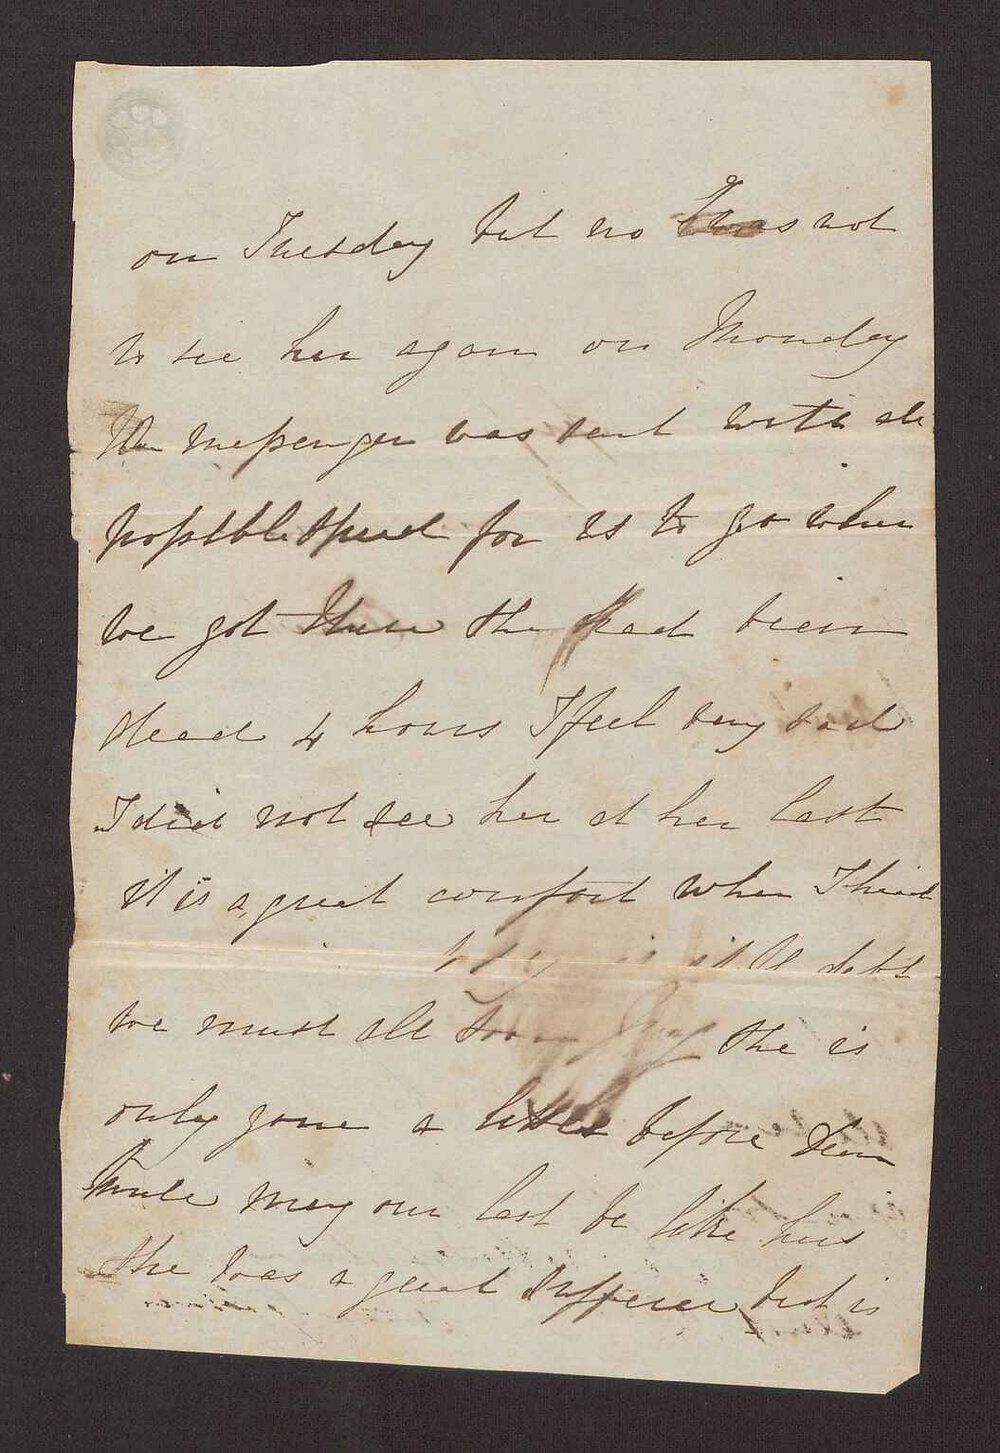 on Tuesday but no I was not
to see her again on Monday
the messenger was sent with all
possible speed for us to go when
we got there she had been
dead 4 hours I feel very sad
I did not see her at her last
it is a great comfort when I think
it is a debt
we must all soon pay she is
only gone a little before Dear
may our last be like hers
she was a great sufferer but is